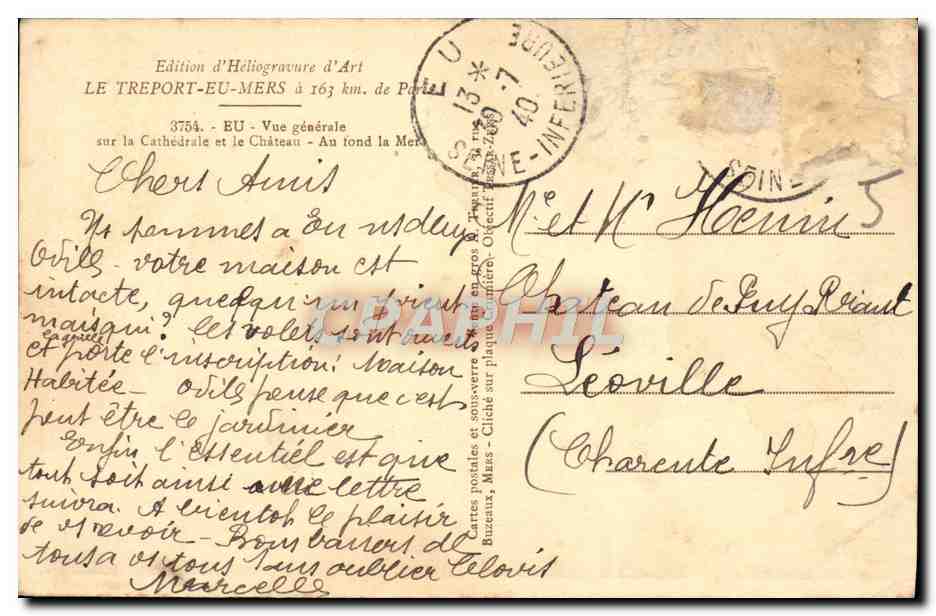 Edition d'Héliogravure d'Art
LE TREPORT-EU-MERS à 163 km. de Paris
3754. - EU - Vue générale
sur la Cathédrale et le Château - Au fond la Mer
EU
13 *
30 -7
40
SEINE-INFERIEURE
SEINE
5
Chers Amis
Ns sommes a Eu ns deux
Odile - votre maison est
intacte, quelqu'un vient
mais qui? les volets sont ouverts
et porte l'inscription! Maison
Habitée - Odile pense que c'est
peut être le jardinier
Enfin l'essentiel est que
tout soit ainsi une lettre
suivra. A bientot le plaisir
de vs revoir - Bons baisers de
tous a vs tous sans oublier Clovis
Marcelle
Cartes postales et sous-verre
Buzeaux, MERS - Cliché sur plaque Lumière - Objectif
en gros
Me et Mr Hoenni
Chateau de Puy Riant
Léoville
(Charente Infre)
CPAPHIL